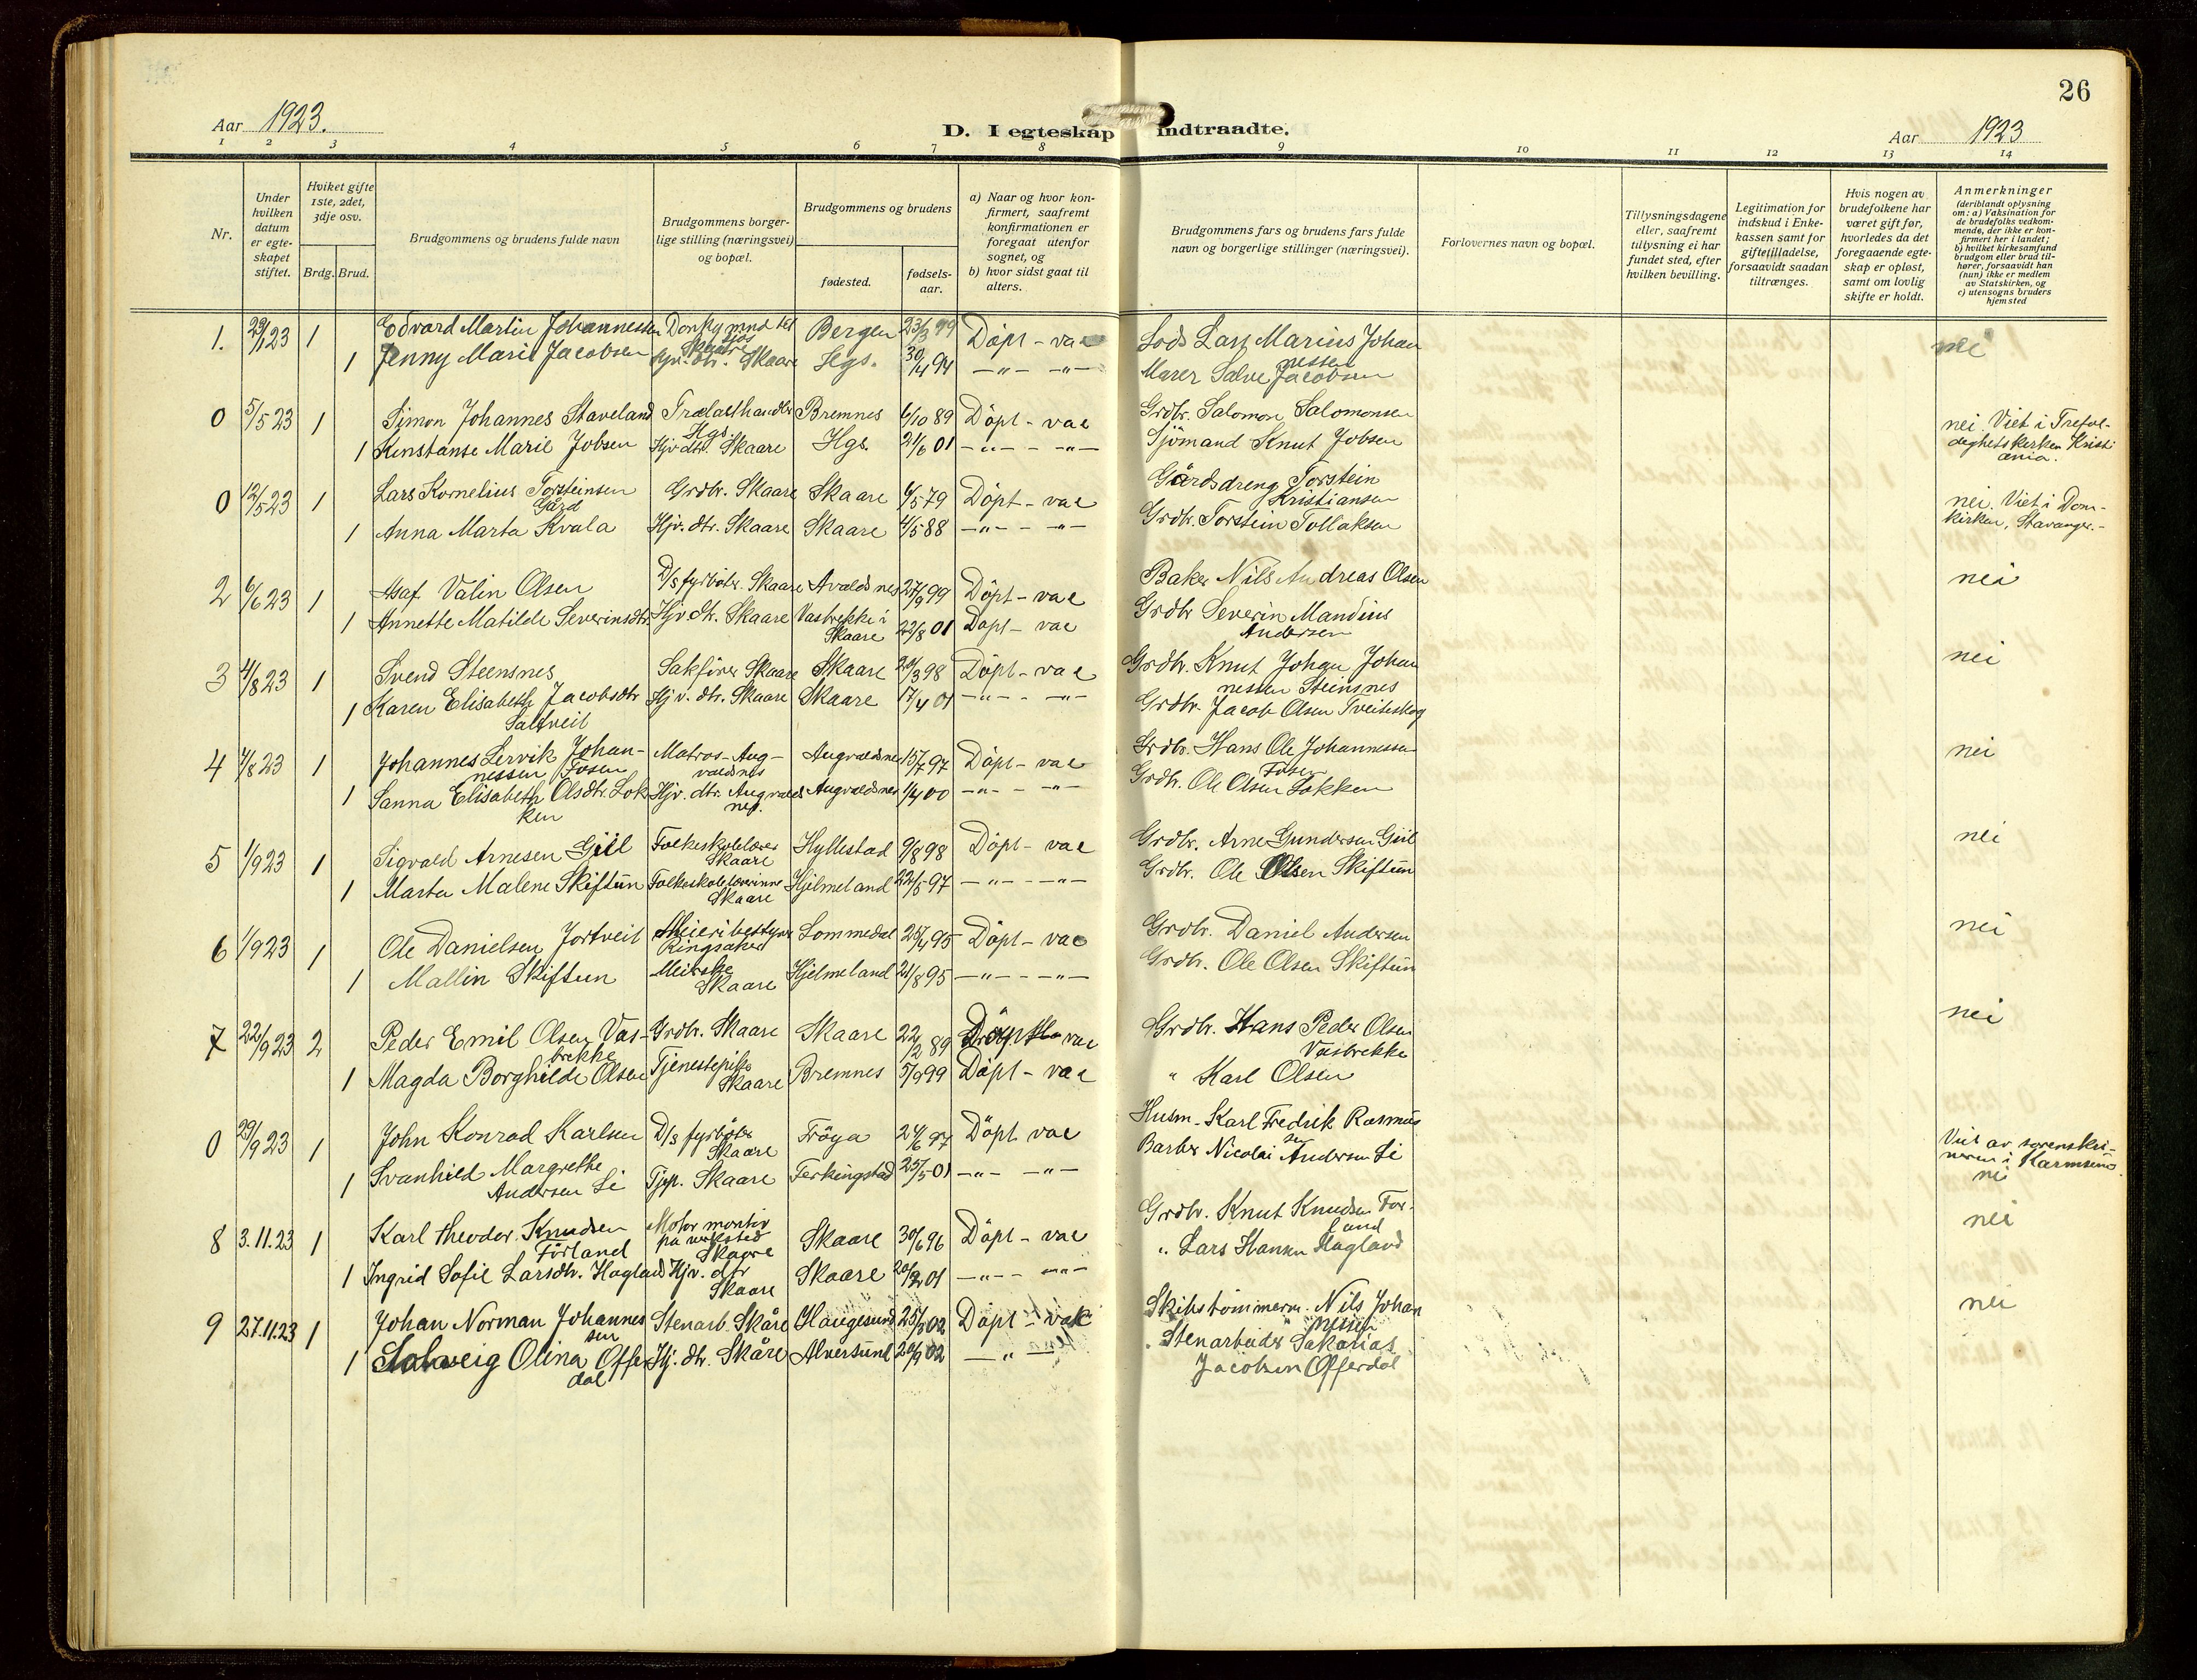 26
Aar 1923.
D. I egteskap indtraadte.
Aar 1923
1 2 3 4 5 6 7 8 9 10 11 12 13 14
Nr.
Under hvilken datum er egteskapet stiftet.
Hviket gifte 1ste, 2det, 3dje osv.
Brdg. Brud.
Brudgommens og brudens fulde navn
Brudgommens borgerlige stilling (næringsvei) og bopæl.
Brudgommens og brudens
fødested.
fødsels-aar.
a) Naar og hvor konfirmert, saafremt konfirmationen er foregaat utenfor sognet, og
b) hvor sidst gaat til alters.
Brudgommens fars og brudens fars fulde navn og borgerlige stillinger (næringsvei).
Forlovernes navn og bopæl.
Tillysningsdagene eller, saafremt tillysning ei har fundet sted, efter hvilken bevilling.
Legitimation for indskud i Enkekassen samt for giftetilladelse, forsaavidt saadan tiltrænges.
Hvis nogen av brudefolkene har været gift før, hvorledes da det foregaaende egteskap er opløst, samt om lovlig skifte er holdt.
Anmerkninger
(deriblandt oplysning om: a) Vaksination for de brudefolks vedkommende, der ikke er konfirmert her i landet; b) hvilket kirkesamfund brudgom eller brud tilhører, forsaavidt han (hun) ikke er medlem av Statskirken, og c) utensogns bruders hjemsted
1. 29/1 23 1 Edvard Martin Johannessen Donkymnd tilsjøs Skaare Bergen 23/3 99 Döpt - vac Lods Lars Marius Johannessen nei
1 Jenny Marie Jacobsen Hjv. dtr. Skaare Hgs. 30/4 94 -"- -"- Murer Salve Jacobsen
0 5/5 23 1 Simon Johannes Staveland Trælasthandler Hgs. Bremnes 6/10 89 Döpt - vac Grdbr. Salomon Salomonsen nei. Viet i Trefoldeghetskirken Kristiania.
1 Konstanse Marie Jobsen Hjv dtr. Skaare Hgs. 21/6 01 -"- -"- Sjömand Knut Jobsen
0 12/5 23 1 Lars Kornelius Torsteinsen Gård Grdbr. Skaare Skaare 6/5 79 Döpt - vac Gårdsdreng Torstein Kristiansen nei. Viet i Domkirken, Stavanger.-
1 Anna Marta Kvala Hjv. dtr. Skaare Skaare 4/5 88 -"- -"- Grdbr. Torstein Tollaksen
2 6/6 23 1 Asaf Valin Olsen D/s fyrböter. Skaare Avaldsnes 27/9 99 Döpt - vac Baker Nils Andreas Olsen nei
1 Annette Matilde Severinsdtr. Hjv. dtr. Skaare Vasbrekke i Skaare 22/8 01 Döpt - vac Grdbr Severin Mandius Andersen
3 4/8 23 1 Svend Steensnes Sakförer Skaare Skaare 20/3 98 Döpt - vac Grdbr. Knut Johan Johannessen Steinsnes nei
1 Karen Elisabeth Jacobsdtr Saltveit Hjv. dtr. Skaare Skaare 17/4 01 -"- -"- Grdbr. Jacob Olsen Tveiteskog
4 7/8 23 1 Johannes Lervik Johannessen Fosen Matros - Augvaldsnes Augvaldsnes 15/7 97 Döpt - vac Grdbr. Hans Ole Johannessen Fosen nei
1 Sanna Elisabeth Olsdtr. Lokken Hjv. dtr. Augvaldsnes. Augvaldsnes 1/4 00 -"- -"- Grdbr. Ole Olsen Lokken
5 1/9 23 1 Sigvald Arnesen Giil Folkeskolelærer Skaare Hyllestad 9/8 98 Döpt - vac Grdbr. Arne Gundersen Giil nei
1 Marta Malene Skiftun Folkeskolelærerinne Skaare Hjelmeland 22/5 97 -"- -"- Grdbr. Ole Olsen Skiftun
6 1/9 23 1 Ole Danielsen Jortveit Meieribestyrer Ringsaker Lommedal 25/4 95 Döpt - vac Grdbr. Daniel Andersen nei
1 Mallin Skiftun Meierske Skaare Hjelmeland 21/8 95 -"- -"- Grdbr. Ole Olsen Skiftun
7 22/9 23 2 Peder Emil Olsen Vasbrekke Grdbr. Skaare Skaare 22/2 89 Döpt vac Grdbr. Hans Peder Olsen Vasbrekke nei
1 Magda Borghilde Olsen Tjenestepike Skaare Bremnes 5/9 99 Döpt - vac " Karl Olsen
0 29/9 23 1 John Konrad Karlsen D/s fyrböter Skaare Fröya 24/6 97 Döpt vac Husm. Karl Fredrik Rasmussen Viet av sorenskriveren i Karmsund. nei
1 Svanhild Margrethe Andersen Li Tjp. Skaare Ferkingstad 25/5 01 -"- -"- Barber Nicolai Andersen Li
8 3.11.23 1 Karl Theodor Knudsen Förland Motor montör på verksted Skaare Skaare 30/6 96 Döpt - vac Grdbr. Knut Knudsen Forland nei
1 Ingrid Sofie Larsdtr. Hagland Hjv. dtr Skaare Skaare 20/2 01 -"- -"- " Lars Hansen Hagland
9 27.11.23 1 Johan Norman Johannessen Stenarb. Skåre Haugesund 25/3 02 Döpt - vak Skibstömmerm. Nils Johannessen nei
1 Solveig Olina Offerdal Hj. dtr. Skåre Alversund 20/9 02 -"- Stenarbeider Sakarias Jacobsen Offerdal